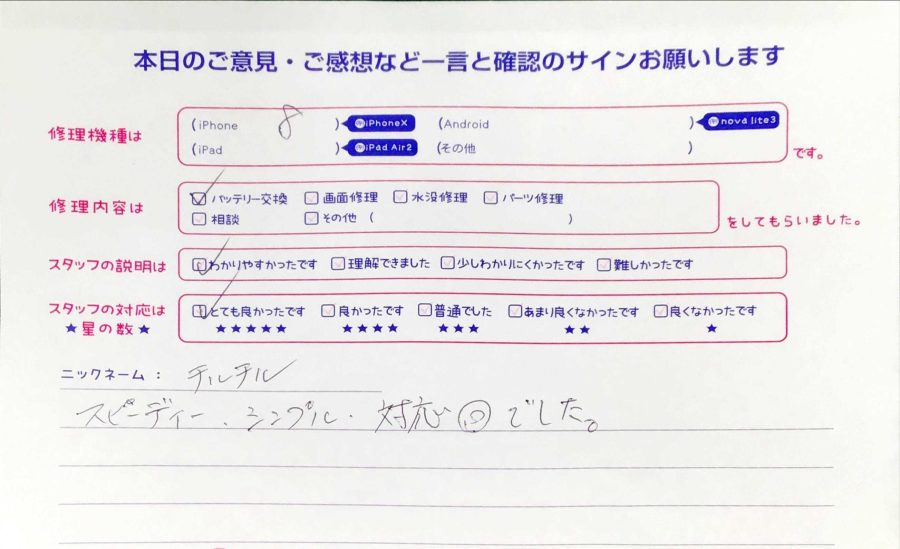 本日のご意見・ご感想など一言と確認のサインお願いします
修理機種は
(iPhone 8 ) iPhoneX (Android ) nova lite3
(iPad ) iPad Air2 (その他 ) です。
修理内容は
バッテリー交換 画面修理 水没修理 パーツ修理
相談 その他 ( )
をしてもらいました。
スタッフの説明は わかりやすかったです 理解できました 少しわかりにくかったです 難しかったです
スタッフの対応は とても良かったです 良かったです 普通でした あまり良くなかったです 良くなかったです
★星の数★ ★★★★★ ★★★★ ★★★ ★★ ★
ニックネーム: チルチル
スピーディー、シンプル・対応◎でした。